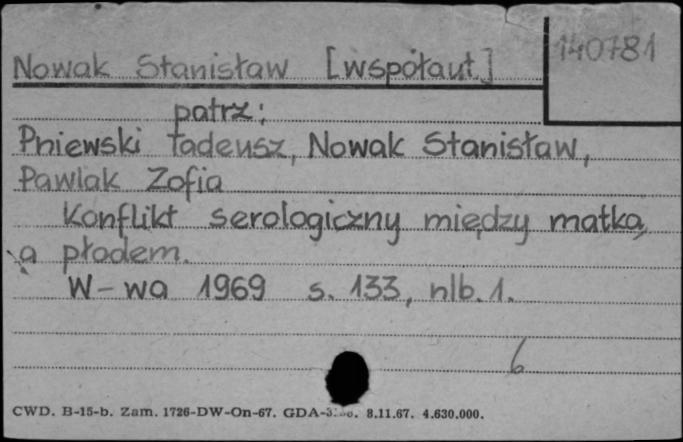 Nowak Stanisław [współaut.] 140781
patrz:
Pniewski Tadeusz, Nowak Stanisław,
Pawlak Zofia
Konflikt serologiczny między matką
a płodem.
W-wa 1969 s. 133, nlb. 1.
6
CWD. B-15-b. Zam. 1726-DW-On-67. 8.11.67. 4.630.000.